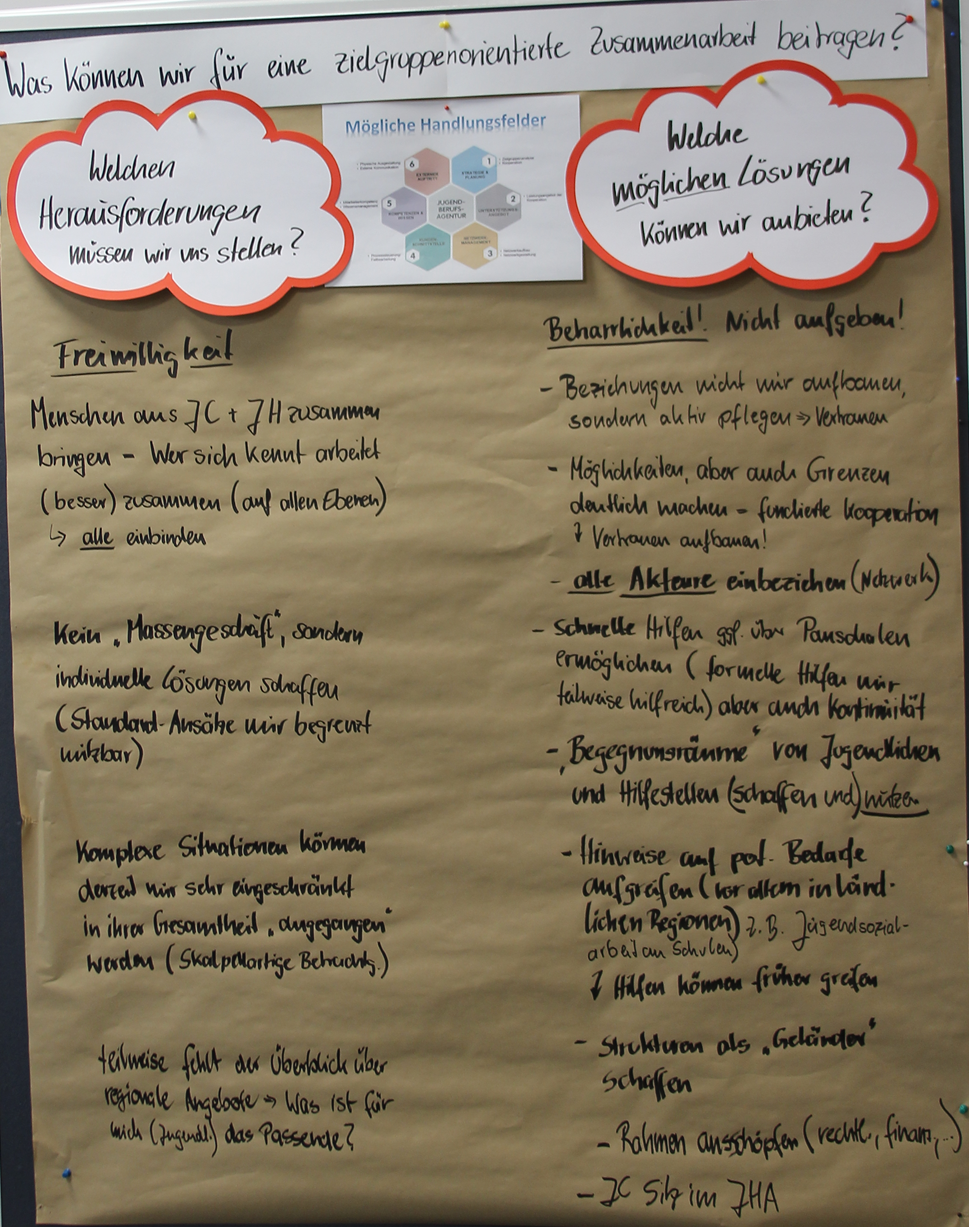 Was können wir für eine zielgruppenorientierte Zusammenarbeit beitragen?
Welchen
Herausforderungen
müssen wir uns stellen?
Mögliche Handlungsfelder
6
1
STRATEGIE &
PLANUNG
5
JUGEND-
BERUFS-
AGENTUR
2
4
3
Welche
möglichen Lösungen
können wir anbieten?
Freiwilligkeit
Menschen aus JC + JH zusammen
bringen - Wer sich kennt arbeitet
(besser) zusammen (auf allen Ebenen)
↳ alle einbinden
Kein „Massengeschäft", sondern
individuelle Lösungen schaffen
(Standard-Ansätze nur begrenzt
nutzbar)
Komplexe Situationen können
derzeit nur sehr eingeschränkt
in ihrer Gesamtheit „angegangen"
werden (Skalpellartige Betrachtg.)
teilweise fehlt der Überblick über
regionale Angebote → Was ist für
mich (Jugendl.) das Passende?
Beharrlichkeit! Nicht aufgeben!
- Beziehungen nicht nur aufbauen,
sondern aktiv pflegen ⇒ Vertrauen
- Möglichkeiten, aber auch Grenzen
deutlich machen - fundierte Kooperation
↓ Vertrauen aufbauen!
- alle Akteure einbeziehen (Netzwerk)
- Schnelle Hilfen ggf. über Pauschalen
ermöglichen (formelle Hilfen nur
teilweise hilfreich) aber auch Kontinuität
- „Begegnungsräume" von Jugendlichen
und Hilfestellen (schaffen und) nutzen
- Hinweise auf pot. Bedarfe
aufgreifen (vor allem in länd-
lichen Regionen) z.B. Jugendsozial-
arbeit an Schulen)
↓ Hilfen können früher greifen
- Strukturen als „Geländer"
schaffen
- Rahmen ausschöpfen (rechtl., finanz,...)
- JC Sitz im JHA